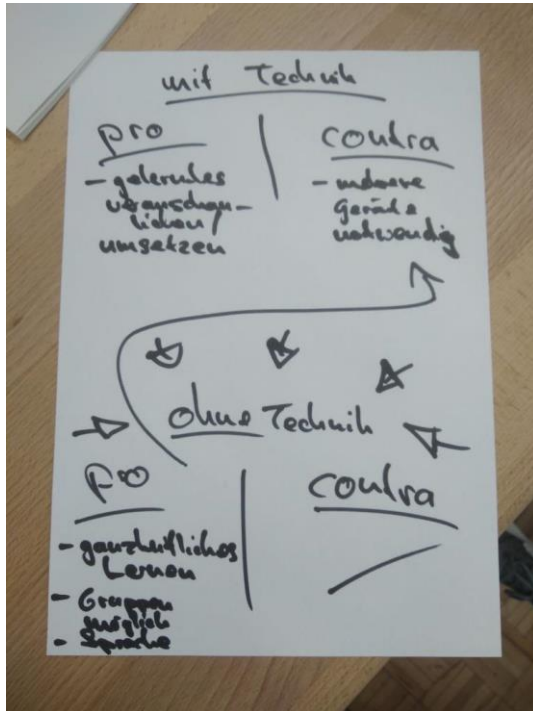 mit Technik
pro
contra
- gelerntes
veranschau-
lichen/
umsetzen
- mehrere
Geräte
notwendig
ohne Technik
pro
contra
- ganzheitliches
Lernen
- Gruppen
möglich
- Sprache